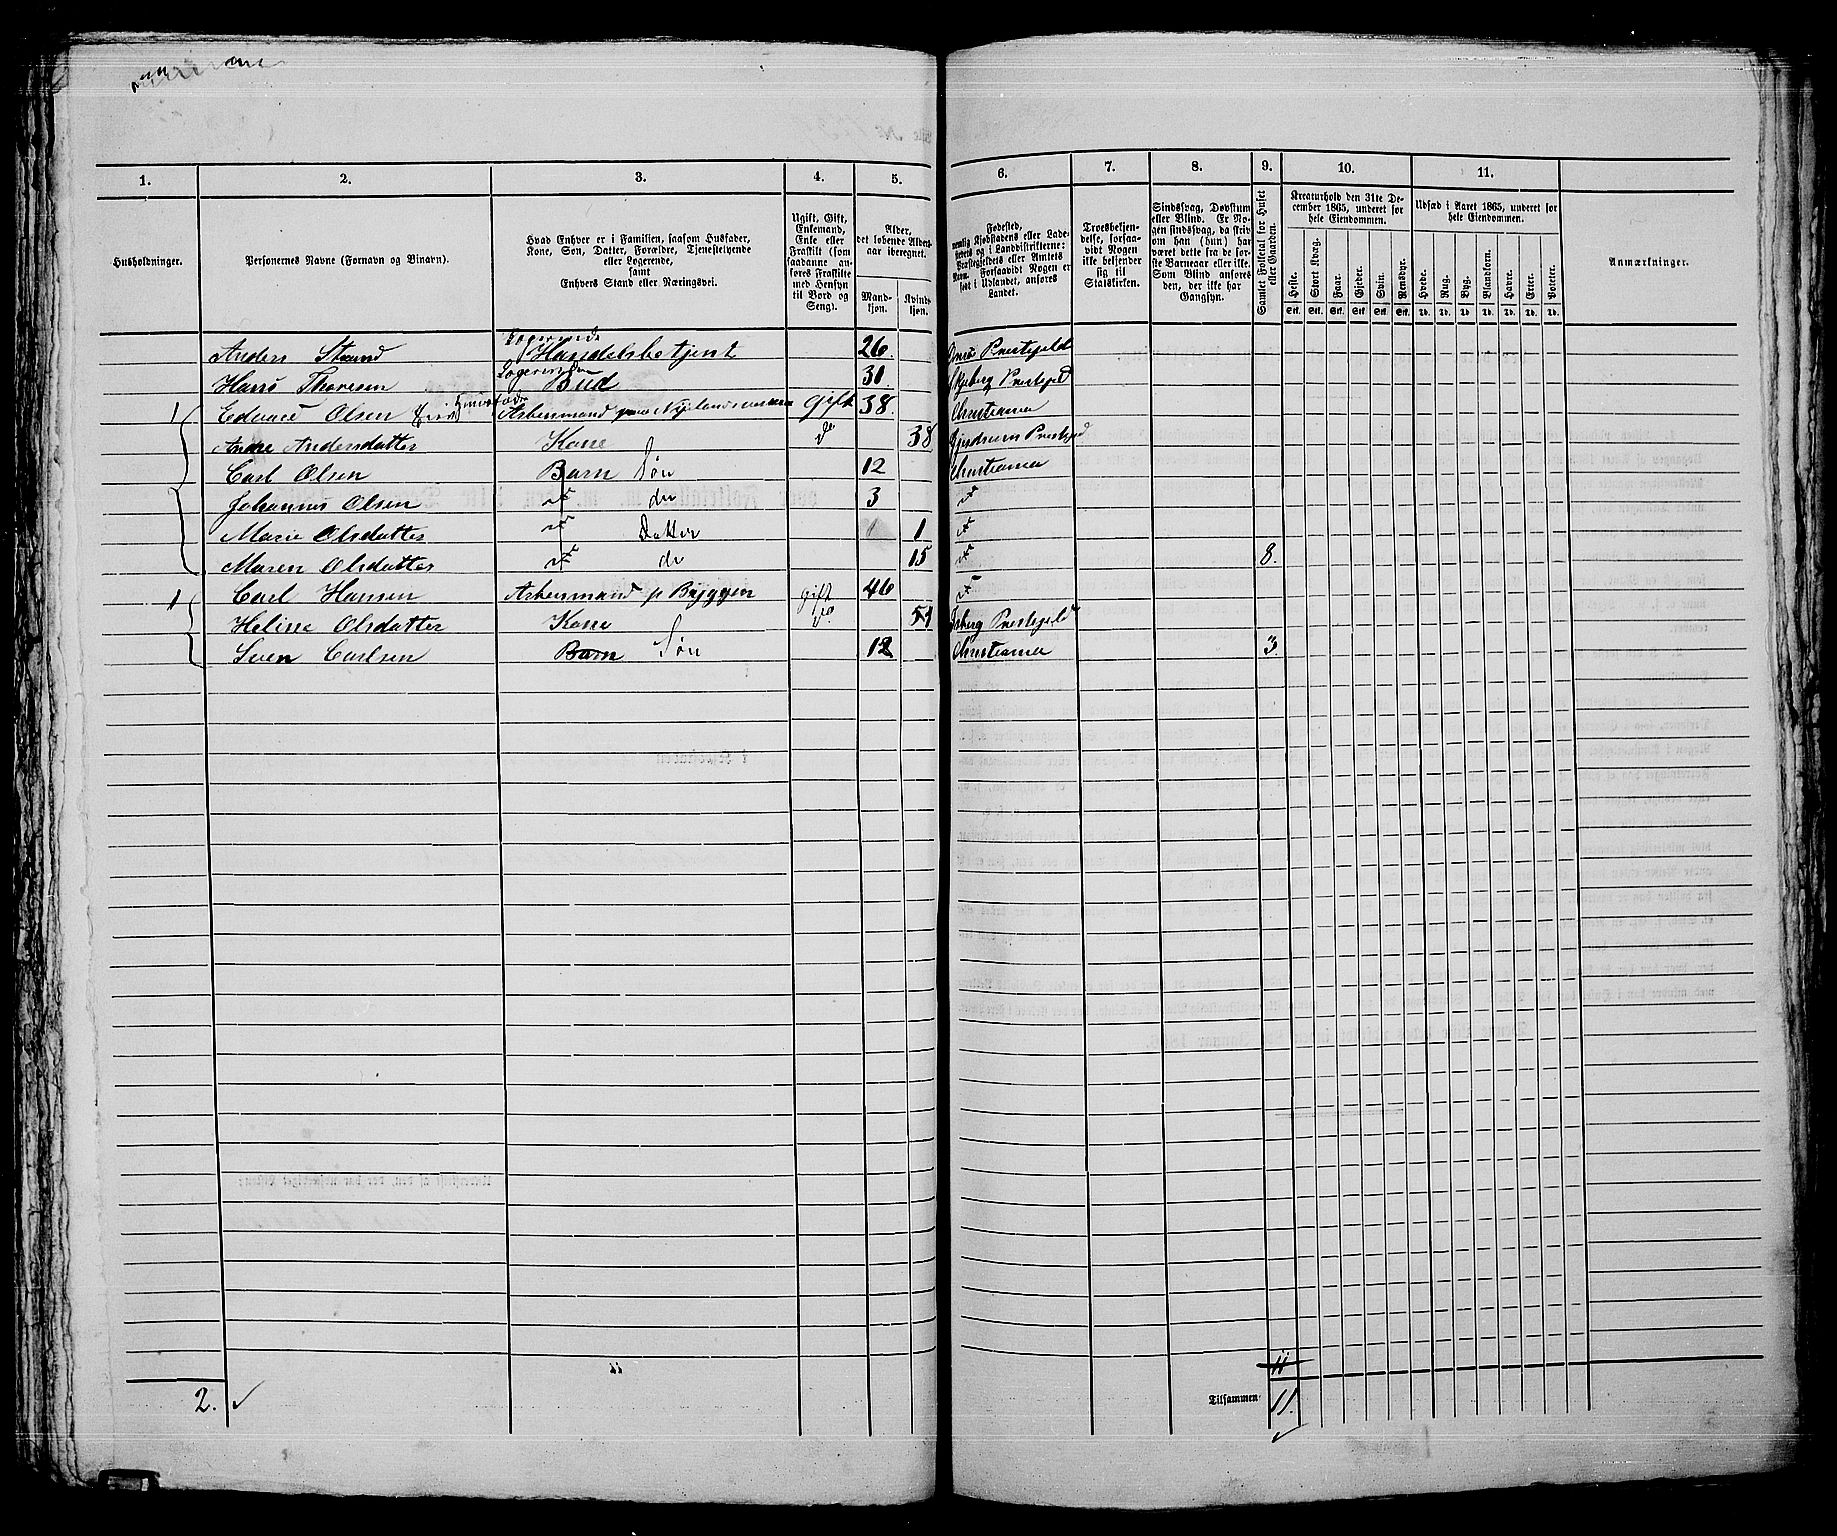 1. 2. 3. 4. 5. 6. 7. 8. 9. 10. 11.
Husholdninger.
Personernes Navne (Fornavn og Binavn).
Hvad Enhver er i Familien, saasom Husfader,
Kone, Søn, Datter, Forældre, Tjenestetyende
eller Logerende,
samt
Enhvers Stand eller Næringsvei.
Ugift, Gift,
Enkemand,
Enke eller
Fraskilt (som
saadanne an-
føres Fraskilte
med Hensyn
til Bord og
Seng).
Alder,
det løbende Alders-
aar iberegnet.
Mand-
kjøn.
Kvinde-
kjøn.
Fødested,
nemlig Kjøbstadens eller Lade-
stedets og i Landdistrikterne:
Præstegjeldets eller Amtets
Navn. Forsaavidt Nogen er
født i Udlandet, anføres
Landet.
Troesbekjen-
delse, forsaa-
vidt Nogen
ikke bekjender
sig til
Statskirken.
Sindssvag, Døvstum
eller Blind. Er No-
gen sindssvag, da skriv
om han (hun) har
været dette fra de før-
ste Barneaar eller ikke.
Som Blind anføres
den, der ikke har
Gangsyn.
Samlet Folketal for Huset
eller Gaarden.
Kreaturhold den 31te De-
cember 1865, underet for
hele Eiendommen.
Heste. Stort Kvæg. Faar. Gjeder. Svin. Rensdyr.
Stk. Stk. Stk. Stk. Stk. Stk.
Udsæd i Aaret 1865, underet for
hele Eiendommen.
Hvede. Rug. Byg. Blandkorn. Havre. Erter. Poteter.
Td. Td. Td. Td. Td. Td. Td.
Anmærkninger.
Anders Strand Logerende Handelsbetjent 26. Præstegjeld
Hans Thoresen Logerende Bud 31 Skjeberg Præstegjeld
1 Edvard Olsen Huusfader Arbeismand gift 38. Christiania
Andersdatter Kone do 38 Præstegjeld
Carl Olsen Barn Søn 12 Christiania
Johannes Olsen do do 3 do
Marie Olsdatter do Datter 1 do
Maren Olsdatter do do 15 do 8.
1 Carl Hansen Arbeismand p Bryggen gift 46 do
Heline Olsdatter Kone do. 51 Præstegjeld
Sven Carlsen Barn Søn 12 Christiania 3.
11
2. ✓
Tilsammen 11.